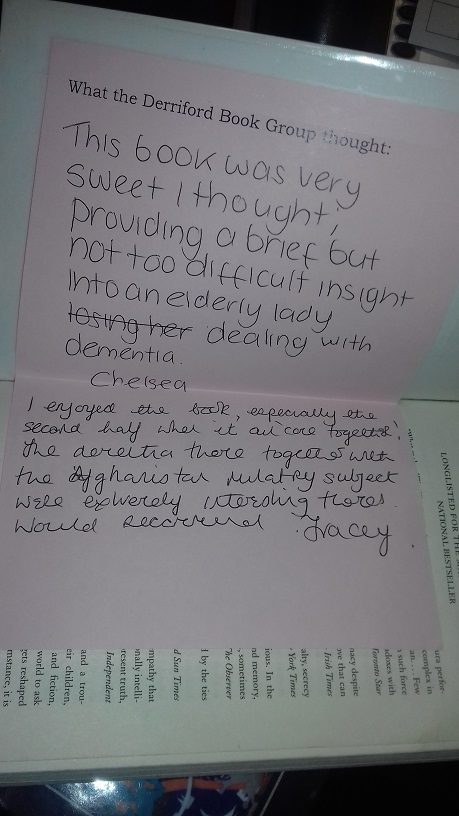 What the Derriford Book Group thought:
This book was very
sweet I thought;
providing a brief but
not too difficult insight
into an elderly lady
losing her dealing with
dementia.
Chelsea
I enjoyed the book, especially the
second half when it all came together.
the demetia theme together with
the Afghanistan military subject
were extremely interesting themes.
Would recommend. Tracey
LONGLISTED FOR THE
NATIONAL BESTSELLER
ura perfor-
complex in
an. . . . Few
s such force
adoxes with
Toronto Star
nacy despite
ove that can
- Irish Times
alty, secrecy
- York Times
ious. In the
nd memory.
, sometimes
The Observer
l by the ties
d Sun Times
mpathy that
onally intelli-
resent truth,
Independent
and a trou-
eir children,
and fiction,
world to ask
gets reshaped
mstance, it is